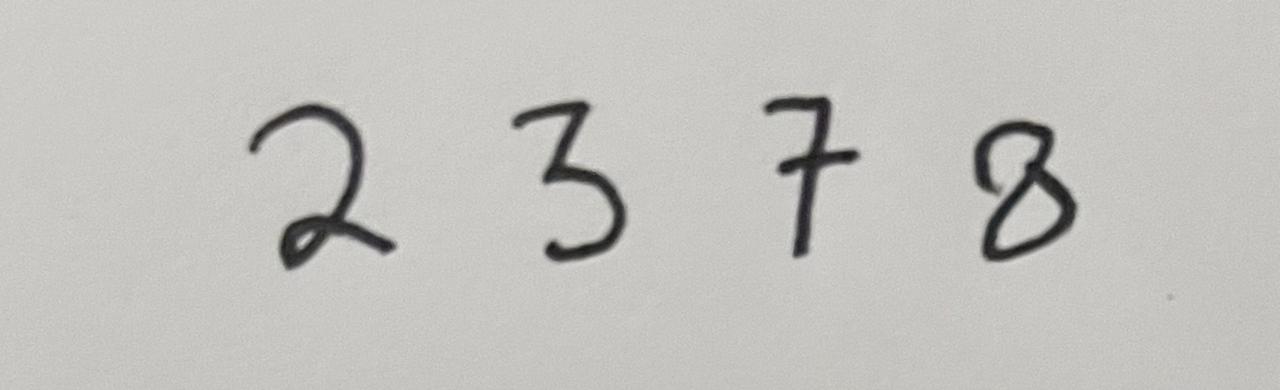 2 3 7 8